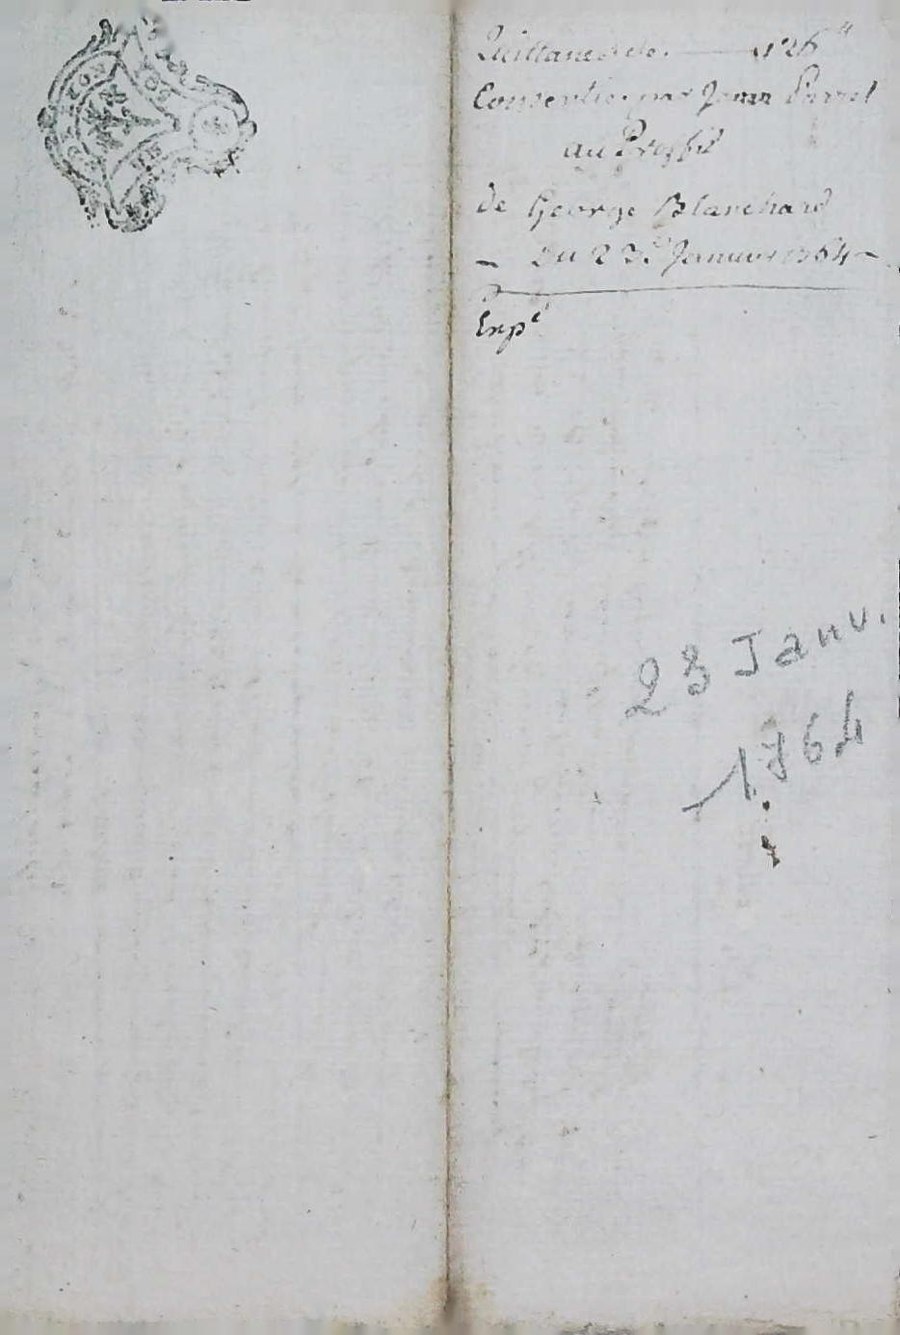 Quittance de 126ᵗᵗ
Consentie par Jean Parrot
au Proffit
de George Blanchard
Du 23 Janvier 1764
Expé
23 Janv.
1764